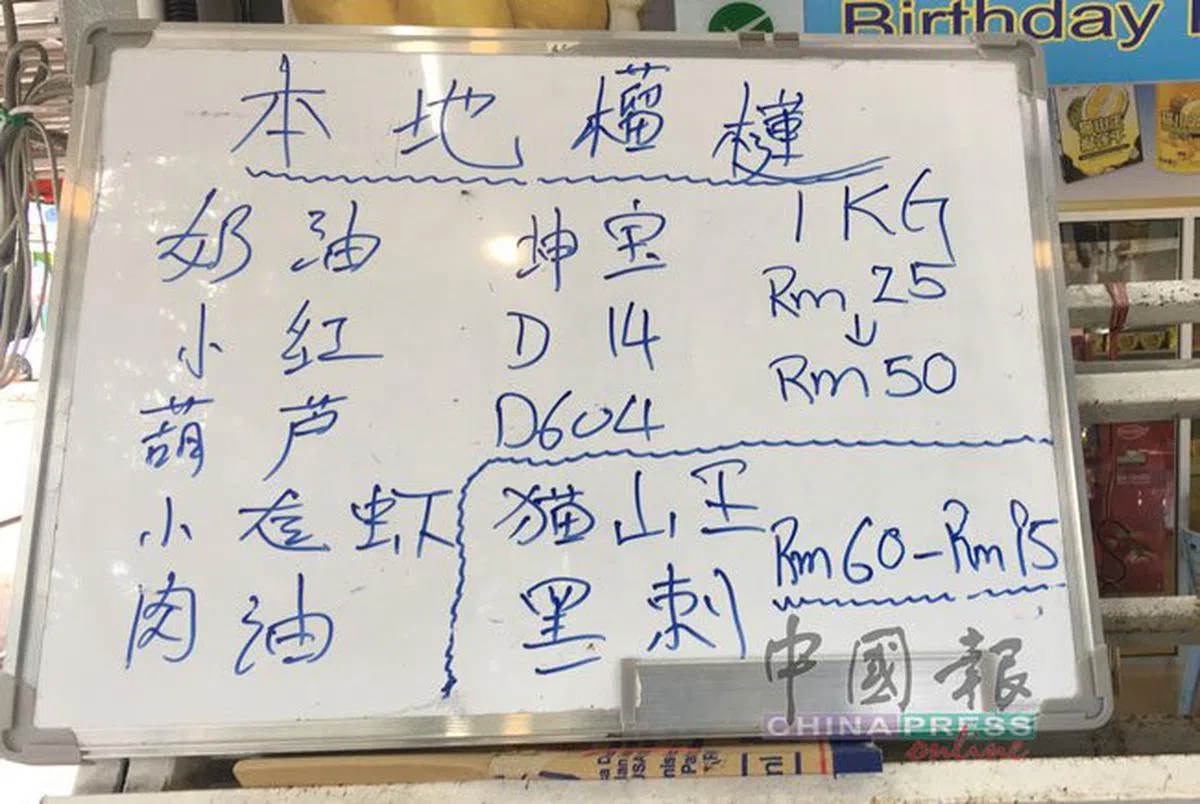 Birthday
本地榴槤
奶油 坤宝 1KG
小红 D14 Rm 25
↓
葫芦 D604 Rm 50
小 虾 猫山王 Rm60-Rm95
肉油 黑刺
中國報
CHINA PRESS
online